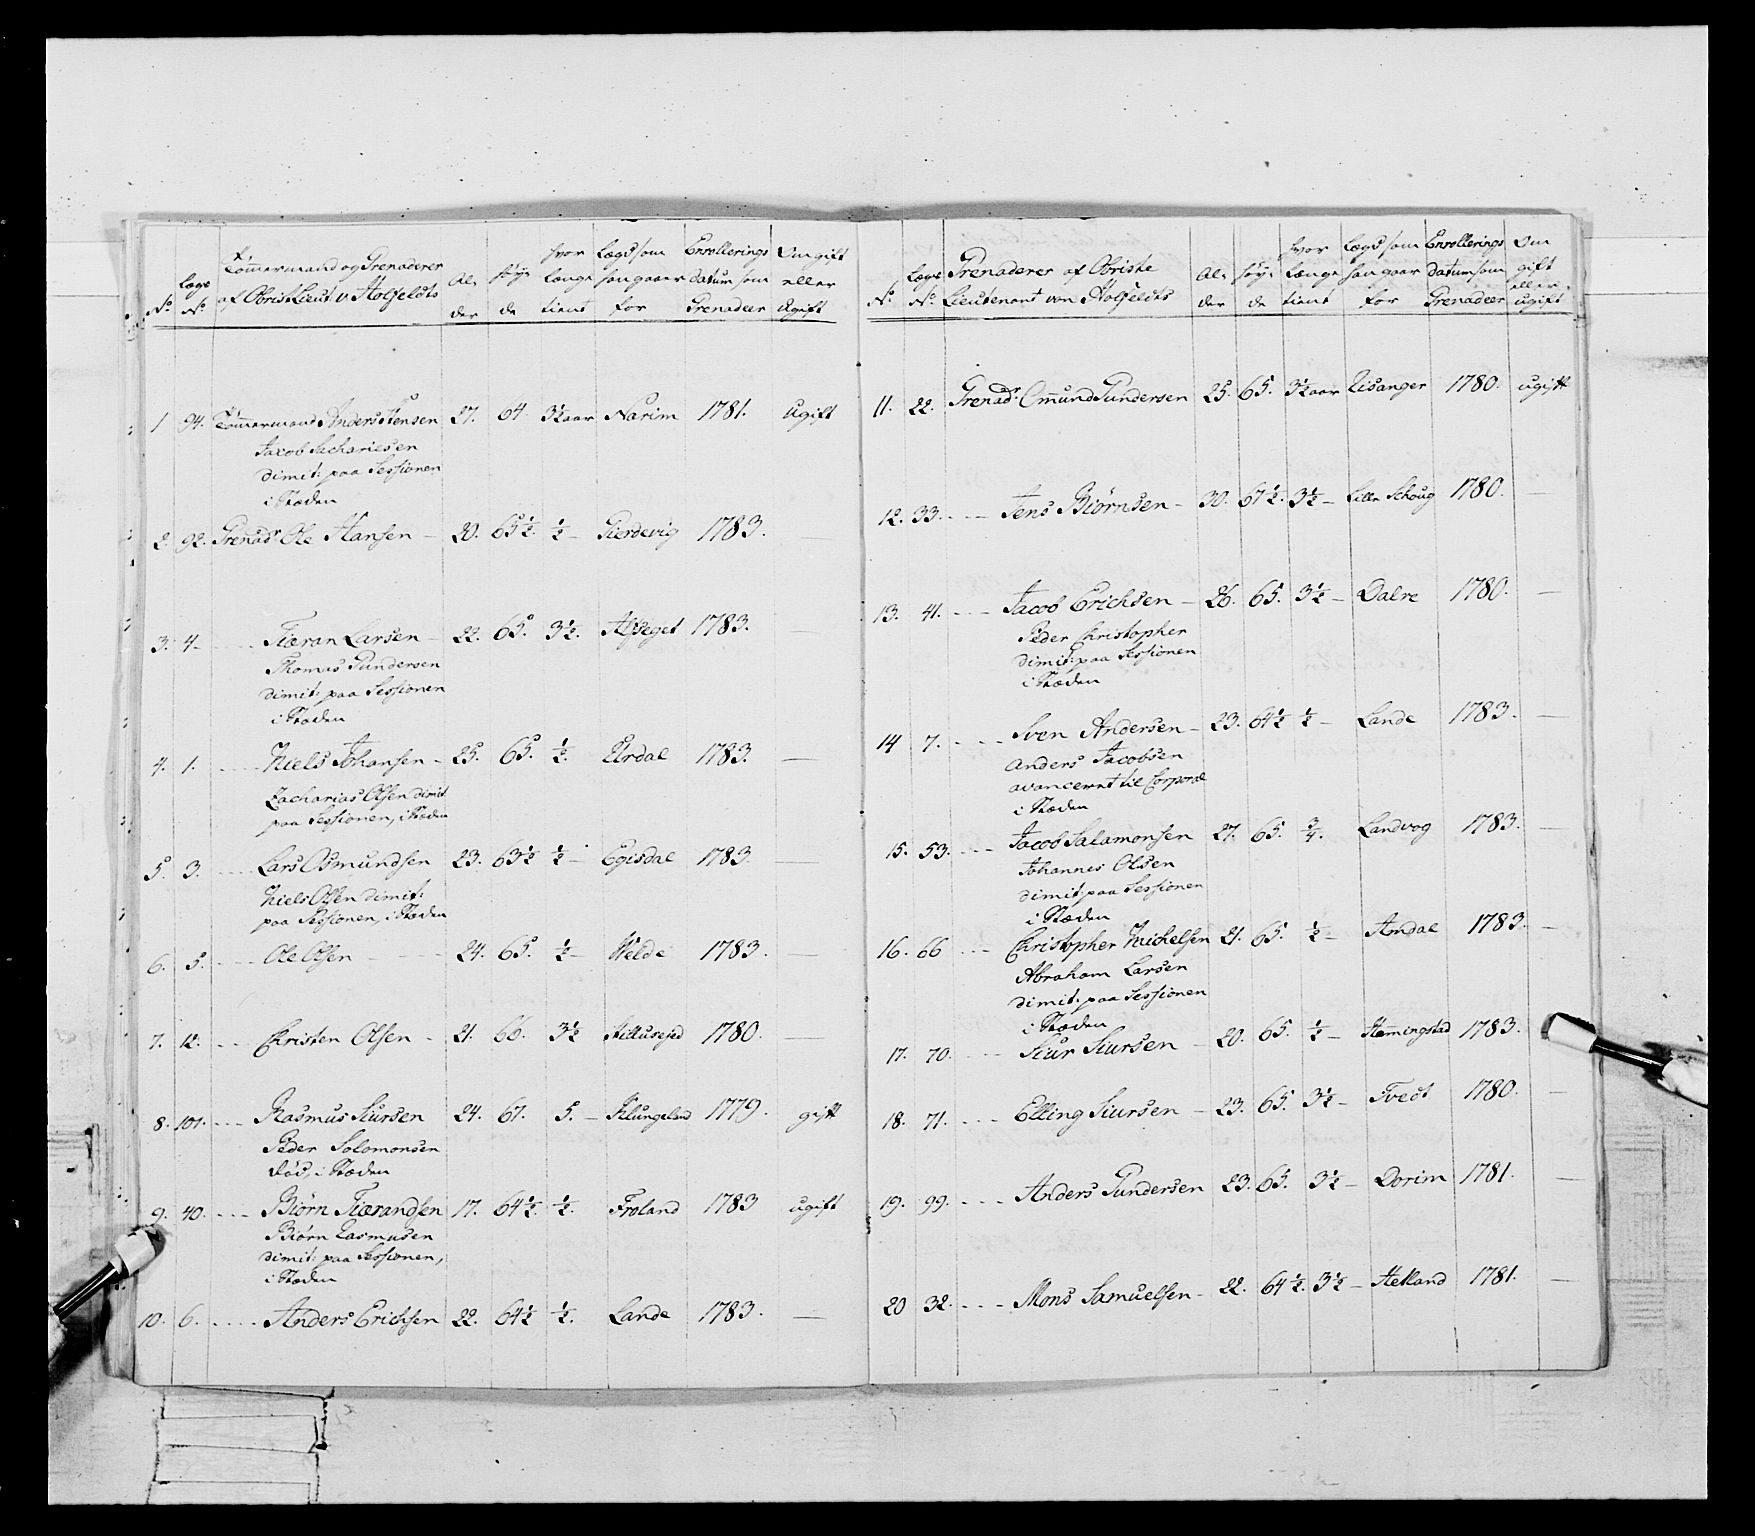 No. Lægs No. Tømmermand og Grenaderer af Obrist Lieut v. Holfeldts Al: der høy: de hvor længe tient Lægd som han gaar for Enrollerings datum som Grenadeer Om gift eller Ugift
1 94. Tømmermand Anders Hensen 27. 64 3½ aar Narim 1781. Ugift
Jacob Sachariesen
dimit: paa Sessionen
i Stæden
2. 92. Grenadr. Ole Hansen – 20. 65½. ½ – Gierdevig 1783.
3. 4. Tiæran Larsen – 22. 65. 3½. 1783. –
Thomas Gundersen
dimit: paa Sessionen
i Stæden
4. 1. Niels Johansen – 25. 65. ½. Urdal 1783. –
Zacharias Olsen dimit
paa Sessionen, i Stæden
5. 3. Lars Osmundsen 23. 63½ ½ – Egisdal 1783.
Niels Olsen dimit:
paa Sessionen, i Stæden
6. 5. Ole Olsen 24. 65. ½ – Welde 1783. –
7. 12. Christen Olsen – 21. 66. 3½ 1780. –
8. 101. Rasmus Siursen 24. 67. 5. – Klungeland 1779. gift
Peder Solomonsen
død, i Stæden
9. 40. Biørn Tiærandsen 17. 64½. ½. Froland 1783 ugift
Biørn Rasmusen
dimit: paa Sessionen,
i Stæden
10. 6. Anders Erichsen 22. 64½ ½. Lande 1783. –
No. Lægs No. Grenaderer af Obriste Lieutenant von Holfeldts Al: der høy: de hvor længe tient Lægd som han gaar for Enrollerings datum som Grenadeer Om gift eller ugift
11. 22. Grenadr. Omund Gundersen 25. 65. 3½ aar Lisanger 1780. ugift
12. 33. Jens Biørnsen – 30. 67½. 3½ – Lille Schoug 1780. –
13. 41. Jacob Erichsen – 26. 65. 3½ – Dalre 1780. –
Peder Christopher
dimit: paa Sessionen
i Stæden
14 7. Sven Andersen – 23. 64½ ½ – Lande 1783. –
Anders Jacobsen
avanceret til Corporal
i Stæden
15. 53. Jacob Salamonsen 27. 65. ¾. Landvog 1783. –
Johannes Olsen
dimit: paa Sessionen
i Stæden
16. 66 Christopher Michelsen 21. 65. ½ – Andal 1783. –
Abraham Larsen
dimit: paa Sessionen
i Stæden
17. 70. Siur Siursen – 20. 65. ½ – Hemingstad 1783.
18. 71. Elling Siursen – 23. 65. 3½ – Tvedt 1780. –
19. 99. Anders Gundersen 23. 65. 3½ – Dorim 1781. –
20 32. Mons Samuelsen – 22. 64½. 3½ – Hetland 1781. –